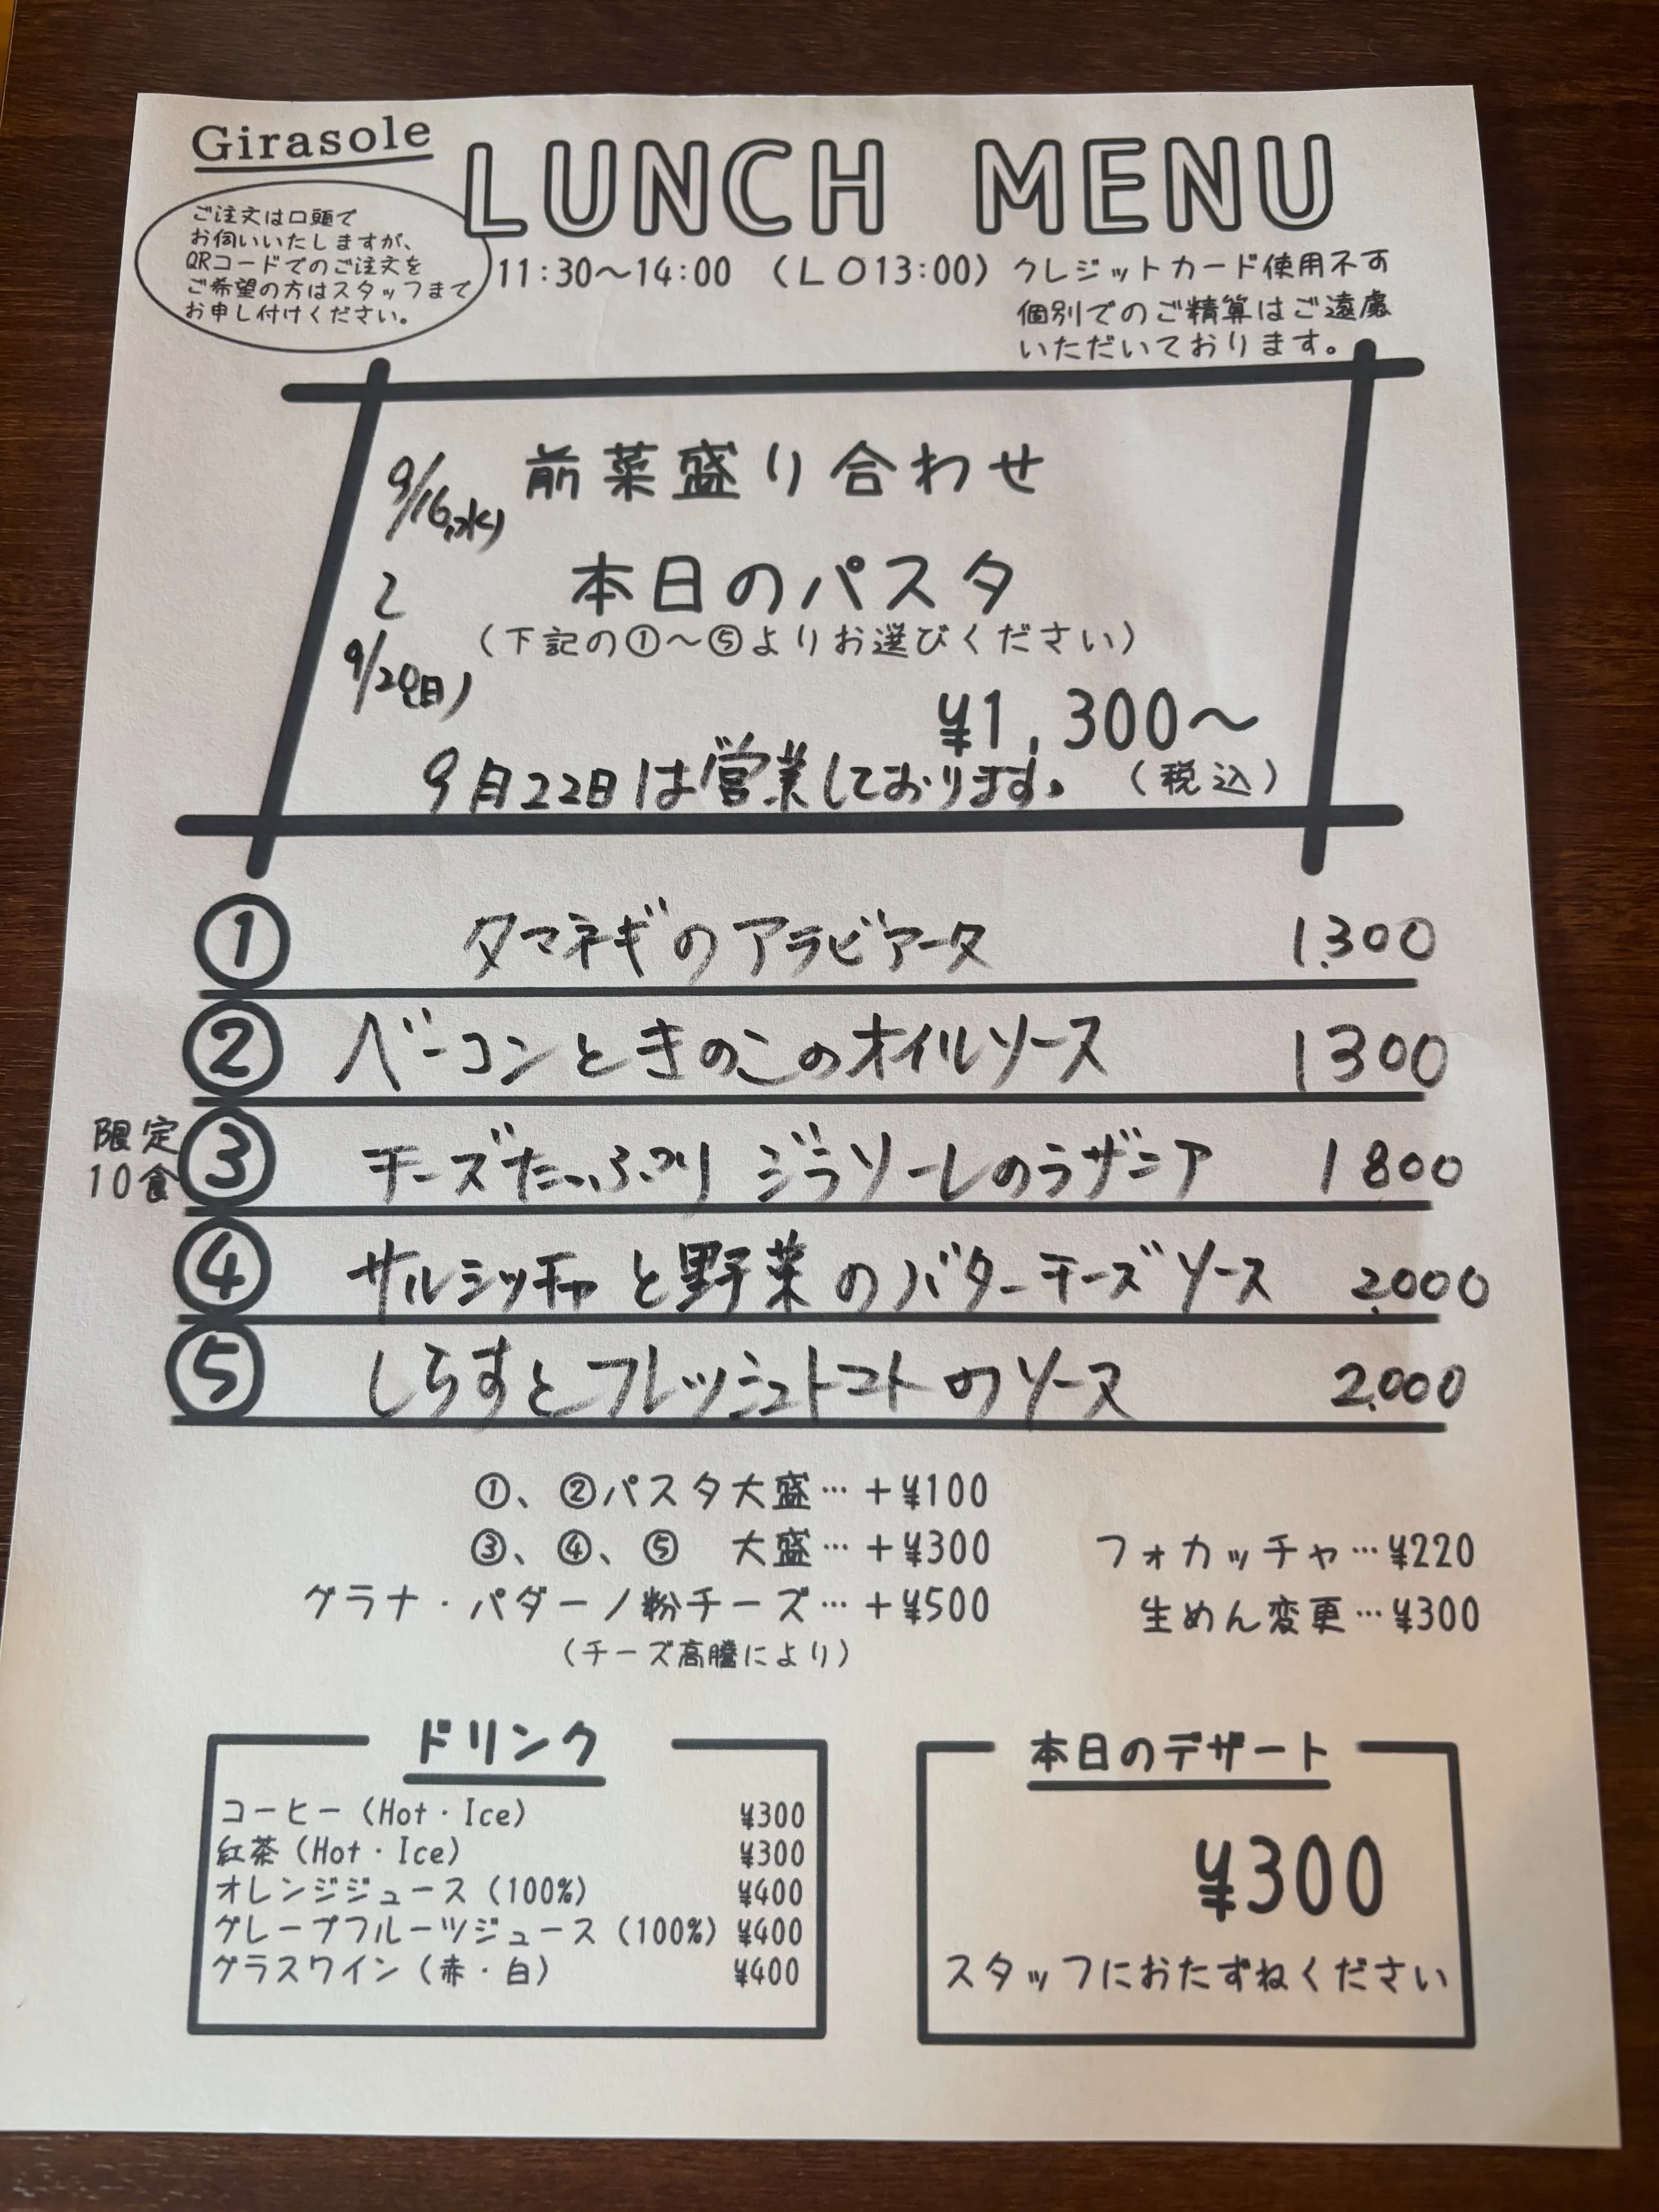 Girasole
LUNCH MENU
ご注文は口頭で
お伺いいたしますが、
QRコードでのご注文を
ご希望の方はスタッフまで
お申し付けください。
11:30～14:00 （LO13:00）クレジットカード使用不可
個別でのご精算はご遠慮
いただいております。
9/16(水)
〜
9/20(日)
前菜盛り合わせ
本日のパスタ
（下記の①～⑤よりお選びください）
¥1,300～
（税込）
9月22日は営業しております。
① タマネギのアラビアータ 1.300
② ベーコンときのこのオイルソース 1300
限定
10食
③ チーズたっぷり ジラソーレのラザニア 1800
④ サルシッチャと野菜のバターチーズソース 2.000
⑤ しらすとフレッシュトマトのソース 2.000
①、②パスタ大盛…＋¥100
③、④、⑤ 大盛…＋¥300
グラナ・パダーノ粉チーズ…＋¥500
（チーズ高騰により）
フォカッチャ…¥220
生めん変更…¥300
ドリンク
コーヒー（Hot・Ice） ¥300
紅茶（Hot・Ice） ¥300
オレンジジュース（100%） ¥400
グレープフルーツジュース（100%） ¥400
グラスワイン（赤・白） ¥400
本日のデザート
¥300
スタッフにおたずねください